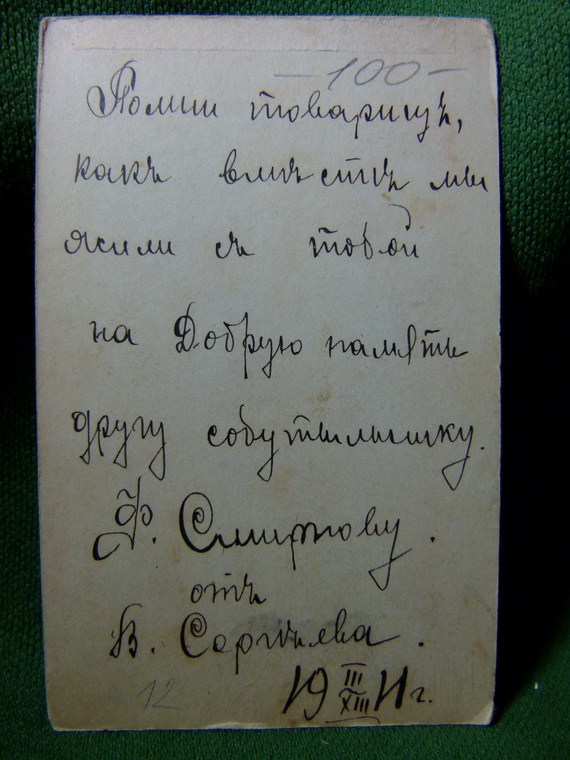 -100-
Помни товарищъ,
какъ вмѣстѣ мы
жили съ тобой
на Добрую память
другу собутыльнику.
Ф. Смирнову.
отъ
В. Сергѣева.
19 III/XIII 11 г.
12